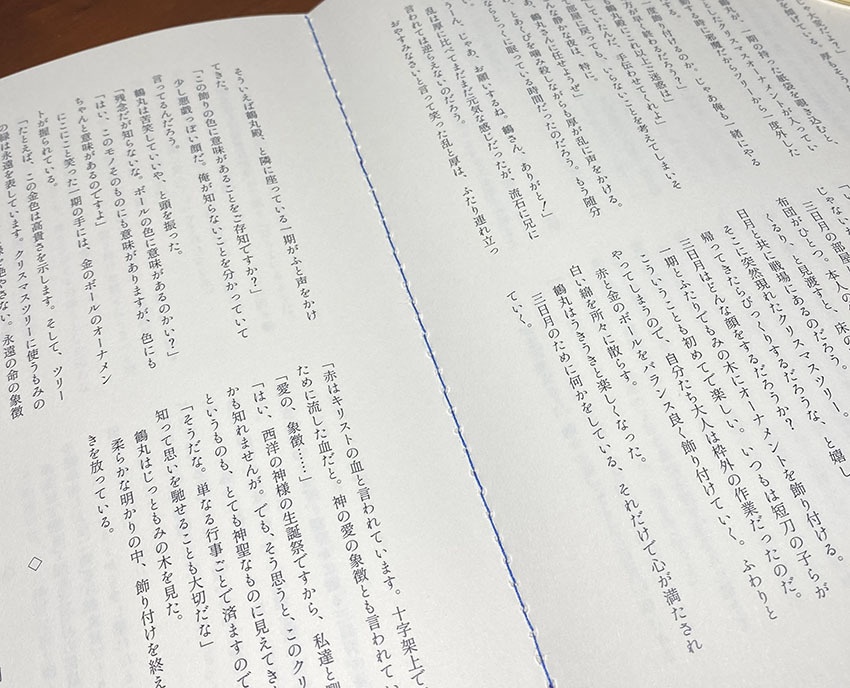 一期の持った紙袋を覗き込むと、
クリスマスオーナメントが入ってい
邪魔だからツリーから一度外した
度飾り付けるのか。じゃあ俺も一緒にやる
方が早く終わるだろう?」
鶴丸殿にこれ以上ご迷惑は」
いいんだ、手伝わせてくれよ」
部屋に戻っても、いらないことを考えてしまいそ
んな静かな夜は、特に。
鶴丸さんに任せようぜ」
とあくびを噛み殺しながらも厚が乱に声をかける。
ならとっくに眠っている時間だったのだろう。もう随分
「うーん、じゃあ、お願いするね。鶴さん、ありがと!」
乱は厚に比べてまだまだ元気な感じだったが、流石に兄に
言われては逆らえないのだろう。
おやすみなさいと言って笑った乱と厚は、ふたり連れ立っ
ていく。
三日月の部屋
布団がひとつ。本人の
くるり、と見渡すと、床の
日月と共に戦場にあるのだろう。
そこに突然現れたクリスマスツリー。
帰ってきたらびっくりするだろうな、と嬉し
三日月はどんな顔をするだろうか?
一期とふたりでもみの木にオーナメントを飾り付ける。
こういうことも初めてで楽しい。いつもは短刀の子らが
やってしまうので、自分たち大人は枠外の作業だったのだ。
赤と金のボールをバランス良く飾り付けていく。ふわりと
白い綿を所々に散らす。
鶴丸はうきうきと楽しくなった。
三日月のために何かをしている、それだけで心が満たされ
ていく。
そういえば鶴丸殿、と隣に座っている一期がふと声をかけ
てきた。
「この飾りの色に意味があることをご存知ですか?」
少し悪戯っぽい顔だ。俺が知らないことを分かっていて
言ってるんだろう。
鶴丸は苦笑していいや、と頭を振った。
「残念だが知らないな。ボールの色に意味があるのかい?」
「はい、このモノそのものにも意味がありますが、色にも
ちゃんと意味があるのですよ」
にこにこと笑った一期の手には、金のボールのオーナメン
トが握られている。
「たとえば、この金色は高貴さを示します。そして、ツリー
の緑は永遠を表しています。クリスマスツリーに使うもみの
絶やさない、永遠の命の象徴
「赤はキリストの血と言われています。十字架上で
ために流した血だと。神の愛の象徴とも言われてい
「愛の、象徴……」
「はい、西洋の神様の生誕祭ですから、私達と
かも知れませんが。でも、そう思うと、このクリ
というものも、とても神聖なものに見えてき
「そうだな。単なる行事ごとで済ますので
知って思いを馳せることも大切だな」
鶴丸はじっともみの木を見た。
柔らかな明かりの中、飾り付けを終え
きを放っている。
◇